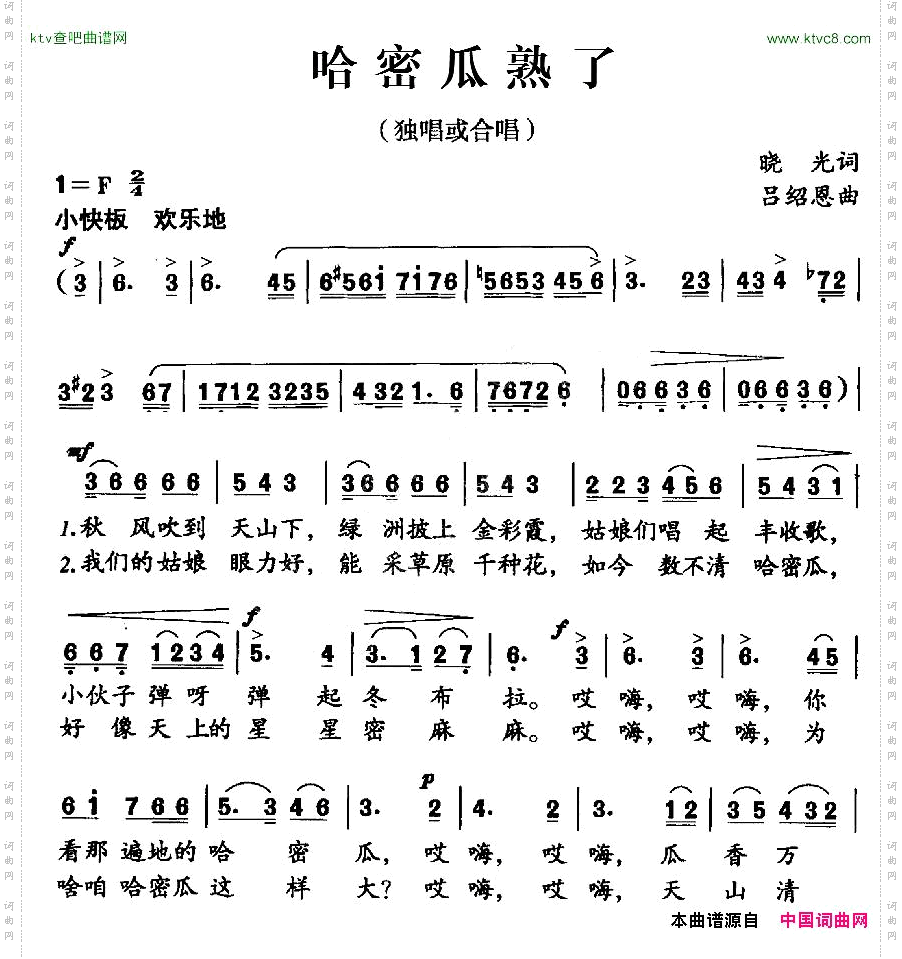 ktv查吧曲谱网
www.ktvc8.com
哈密瓜熟了
（独唱或合唱）
晓 光词
1=F 2/4
吕绍恩曲
小快板 欢乐地
f
(3 | 6. 3 | 6. 45 | 6#561 7176 | ♮5653 456 | 3. 23 | 434 ♭72 |
3#23 67 | 1712 3235 | 4321. 6 | 76726 | 06636 | 06636) |
mf
36666 | 543 | 36666 | 543 | 223 456 | 5431 |
1.秋 风吹到 天山下，绿 洲披上 金彩霞，姑娘们唱 起 丰收歌，
2.我们的姑娘 眼力好，能 采草原 千种花，如今 数不清 哈密瓜，
f
f
667 1234 | 5. 4 | 3. 127 | 6. 3 | 6. 3 | 6. 45 |
小伙子弹呀 弹 起 冬 布 拉。 哎 嗨， 哎 嗨， 你
好 像天上的 星 星 密 麻 麻。 哎 嗨， 哎 嗨， 为
p
61 766 | 5. 346 | 3. 2 | 4. 2 | 3. 12 | 35 432 |
看那 遍地的 哈 密 瓜， 哎 嗨， 哎 嗨， 瓜 香 万
啥咱 哈密瓜 这 样 大？ 哎 嗨， 哎 嗨， 天 山 清
本曲谱源自 中国词曲网